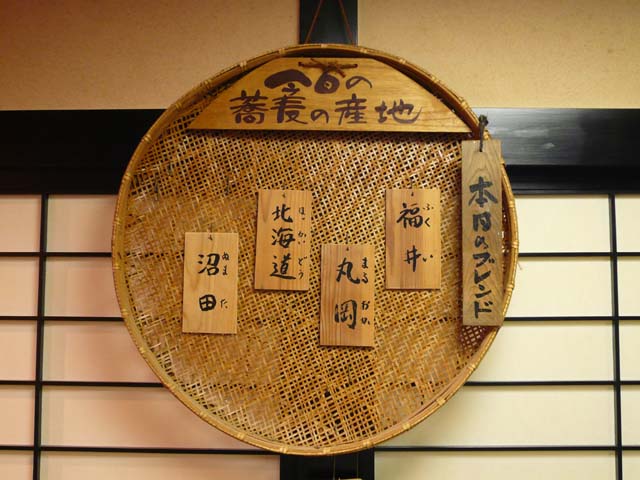 今日の
蕎麦の産地
本日のブレンド
福井
ふくい
丸岡
まるおか
北海道
ほっかいどう
沼田
ぬまた